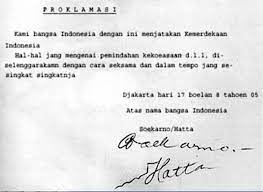 P R O K L A M A S I
Kami bangsa Indonesia dengan ini menjatakan Kemerdekaan
Indonesia
Hal-hal jang mengenai pemindahan kekoeasaan d.l.l, di-
selenggarakamn dengan cara seksama dan dalam tempo jang se-
singkat singkatnja
Djakarta hari 17 boelan 8 tahoen 05
Atas nama bangsa Indonesia
Soekarno/Hatta
Soekarno.-
Hatta